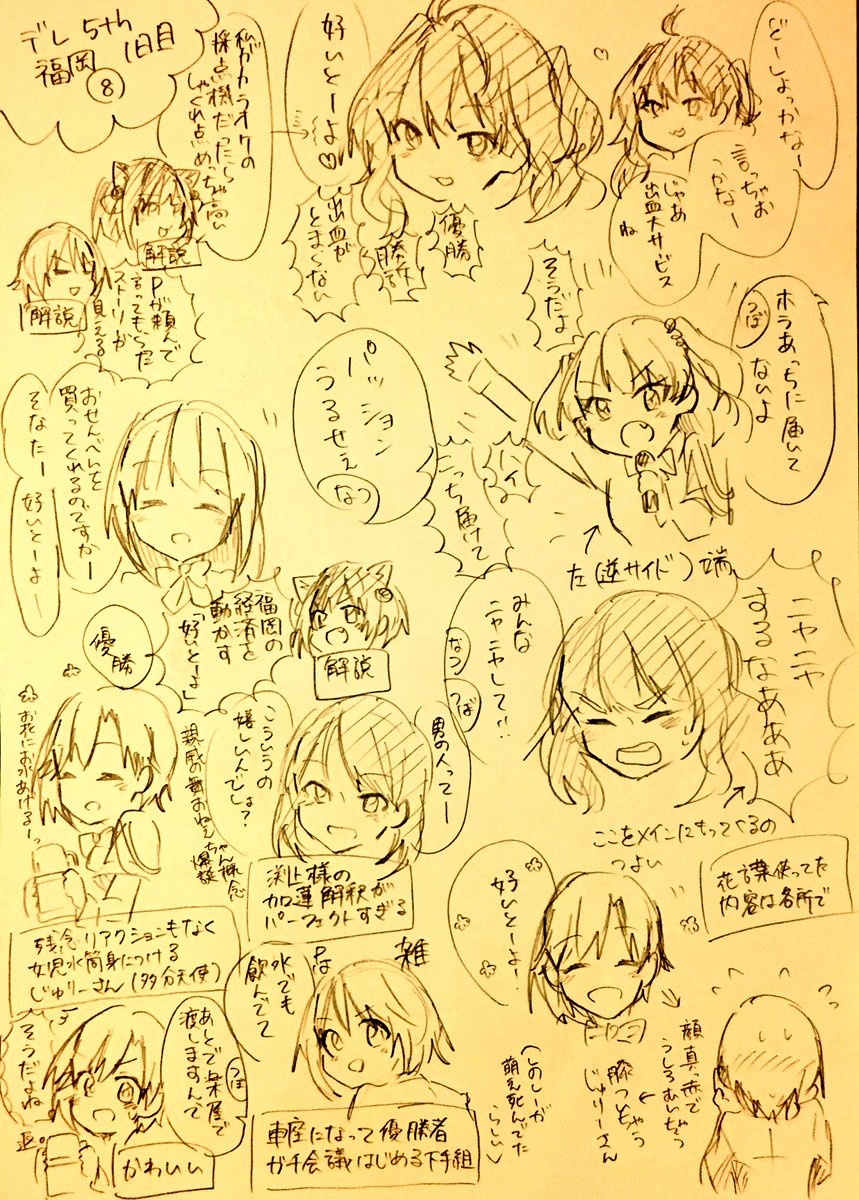 デレ5th
福岡
1日目
⑧
どーしょっかなー
言っちゃお
っかなー
じゃあ
出血大サービス
ね
好いとーよ♡
優勝
勝訴
出血が
とまらない
私がカラオケの
採点機だったら
しゃくれ点めっちゃ高い
解説
解説
Pが頼んで
言ってもらった
ストーリーが
見える
ホラあっちに届いて
ないよ
つば
そうだよ
ハイよ
こっち届けて
左(逆サイド)端
パッション
うるせぇ
なつ
おせんべんを
買ってくれるのですかー
そなたー 好いとーよー
解説
福岡の
経済を
動かす
「好いとーよ」
優勝
ニヤニヤ
するなあああ
みんな
ニヤニヤして!!
なつ
つば
ここをメインにもってくるの
つよい
花言葉使ってた
内容は各所で
男の人ってー
こういうの
嬉しいんでしょ?
親戚の
おねぇちゃん概念
爆誕
渕上様の
加蓮解釈が
パーフェクトすぎる
お花におみずあげるーっ
残念リアクションもなく
女児水筒身につける
じゅりーさん(多分天使)
好いとーよー
顔真っ赤で
うしろむいちゃう
じゅりーさん
(しのしーが
萌え死んでた
らしい)
水でも
飲んでて
雑
車座になって優勝者
ガチ会議はじめる下手組
つば
あとで楽屋で
渡しますんで
そうだよね
かわいい